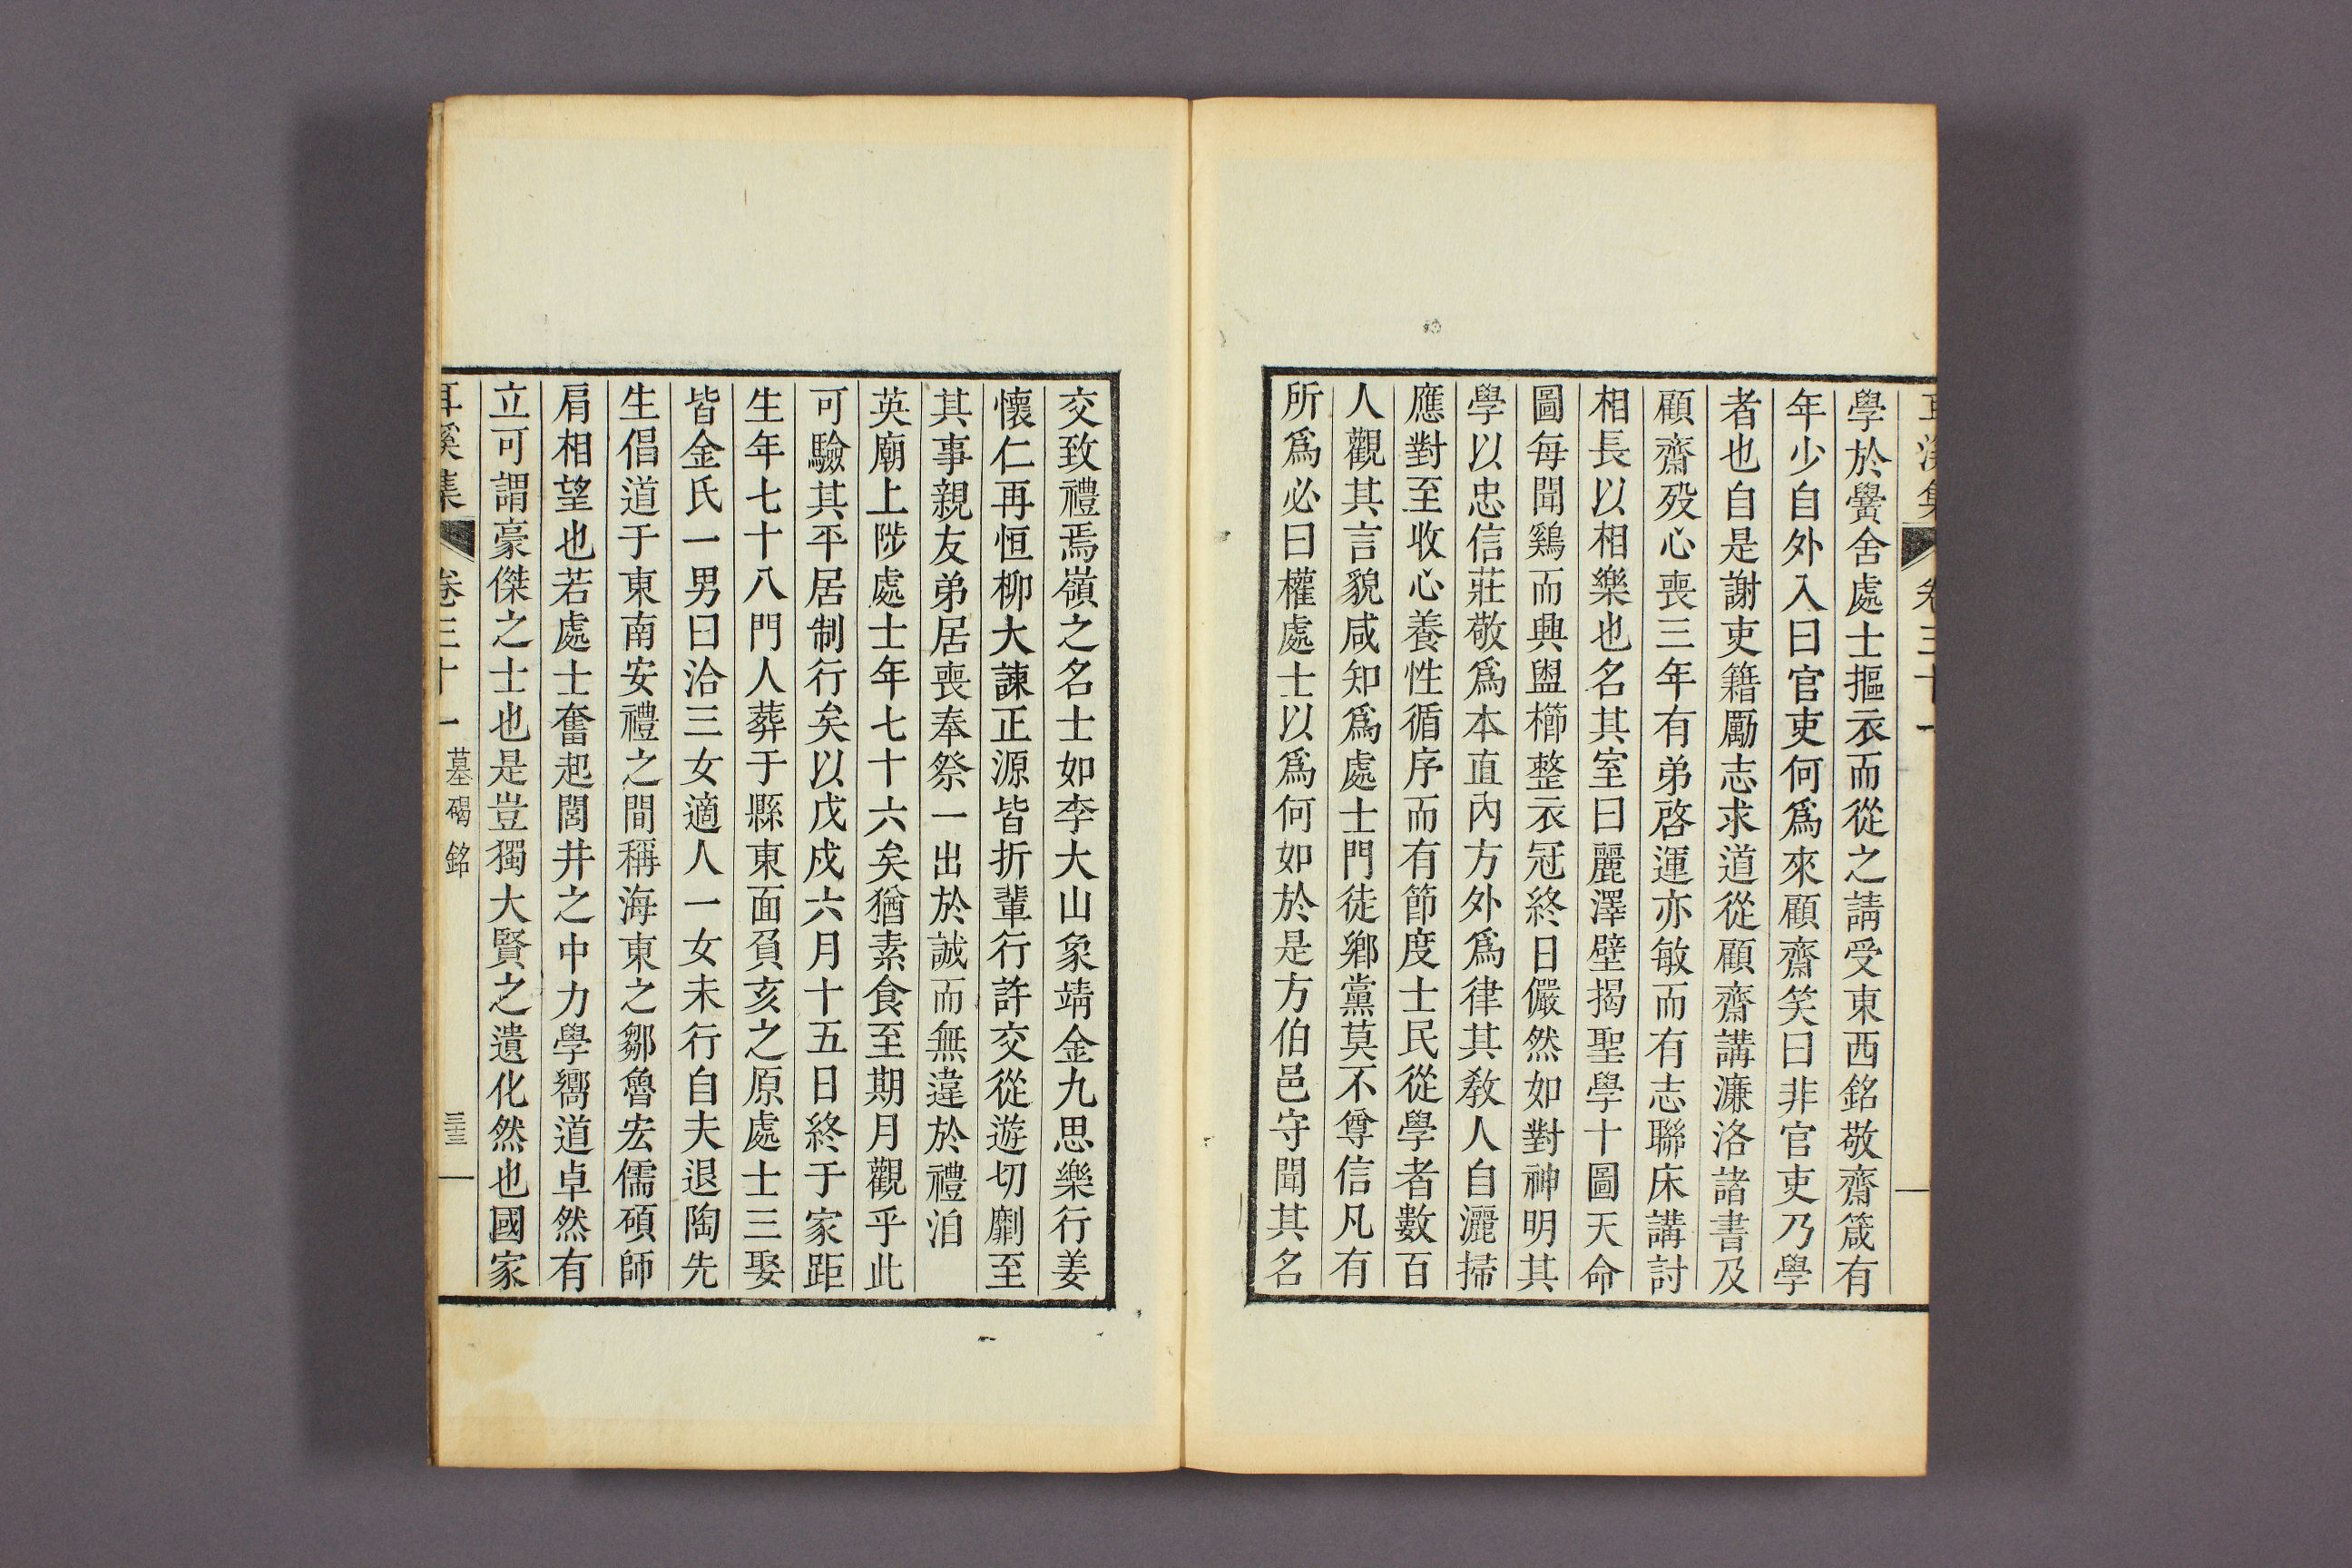 學於黌舍處士摳衣而從之請受東西銘敬齋箴有
年少自外入曰官吏何爲來顧齋笑曰非官吏乃學
者也自是謝吏籍勵志求道從顧齋講濂洛諸書及
顧齋殁心喪三年有弟啓運亦敏而有志聯床講討
相長以相樂也名其室曰麗澤壁揭聖學十圖天命
圖每聞鷄而興盥櫛整衣冠終日儼然如對神明其
學以忠信莊敬爲本直內方外爲律其敎人自灑掃
應對至收心養性循序而有節度士民從學者數百
人觀其言貌咸知爲處士門徒鄕黨莫不尊信凡有
所爲必曰權處士以爲何如於是方伯邑守聞其名
交致禮焉嶺之名士如李大山象靖金九思樂行姜
懷仁再恒柳大諫正源皆折輩行許交從遊切劘至
其事親友弟居喪奉祭一出於誠而無違於禮洎
英廟上陟處士年七十六矣猶素食至期月觀乎此
可驗其平居制行矣以戊戌六月十五日終于家距
生年七十八門人葬于縣東面負亥之原處士三娶
皆金氏一男曰洽三女適人一女未行自夫退陶先
生倡道于東南安禮之間稱海東之鄒魯宏儒碩師
肩相望也若處士奮起閭井之中力學嚮道卓然有
立可謂豪傑之士也是豈獨大賢之遺化然也國家
耳溪集 卷三十一 墓碣銘 三十三